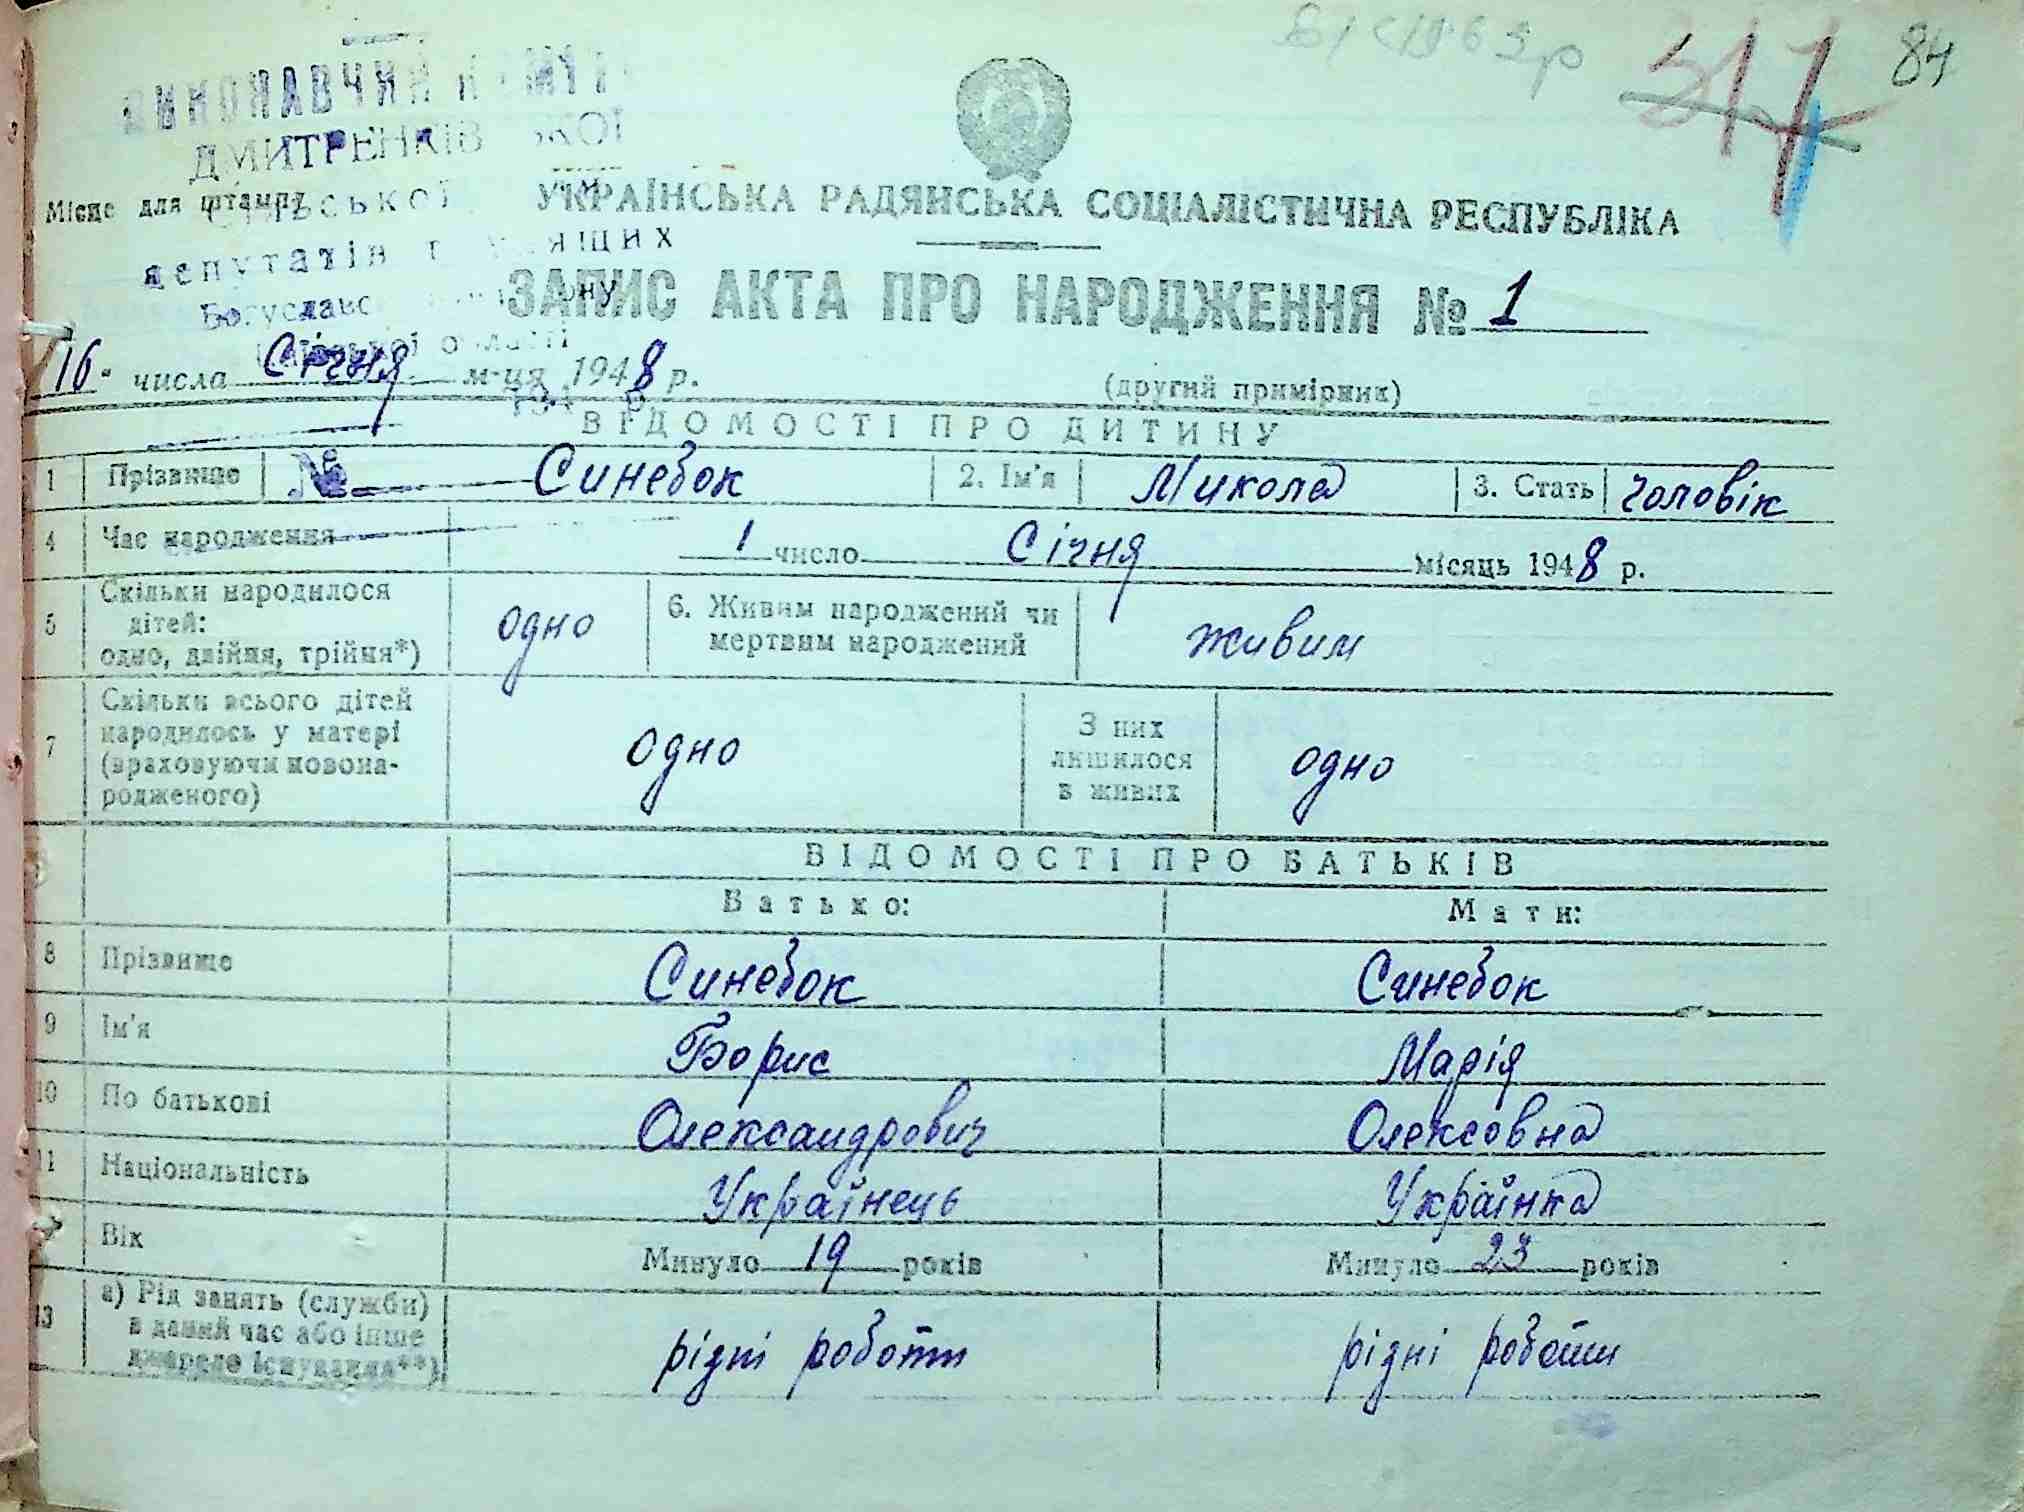 84
ВИКОНАВЧИЙ
ДМИТРЕНКІВСЬКОЇ
Місце для штампу
УКРАЇНСЬКА РАДЯНСЬКА СОЦІАЛІСТИЧНА РЕСПУБЛІКА
депутатів трудящих
ЗАПИС АКТА ПРО НАРОДЖЕННЯ № 1
16 числа Січня м-ця 1948 р.
(другий примірник)
ВІДОМОСТІ ПРО ДИТИНУ
1 Прізвище № Синебок 2. Ім'я Микола 3. Стать чоловік
4 Час народження 1 число Січня місяць 1948 р.
5 Скільки народилося дітей: одно, двійня, трійня*) одно 6. Живим народжений чи мертвим народжений живим
7 Скільки всього дітей народилось у матері (враховуючи новонародженого) одно З них лишилося в живих одно
ВІДОМОСТІ ПРО БАТЬКІВ
Батько: Мати:
8 Прізвище Синебок Синебок
9 Ім'я Борис Марія
10 По батькові Олександрович Олексовна
11 Національність Українець Українка
Вік Минуло 19 років Минуло 23 років
13 а) Рід занять (служби) в даний час або інше джерело існування**) рідні роботи рідні роботи